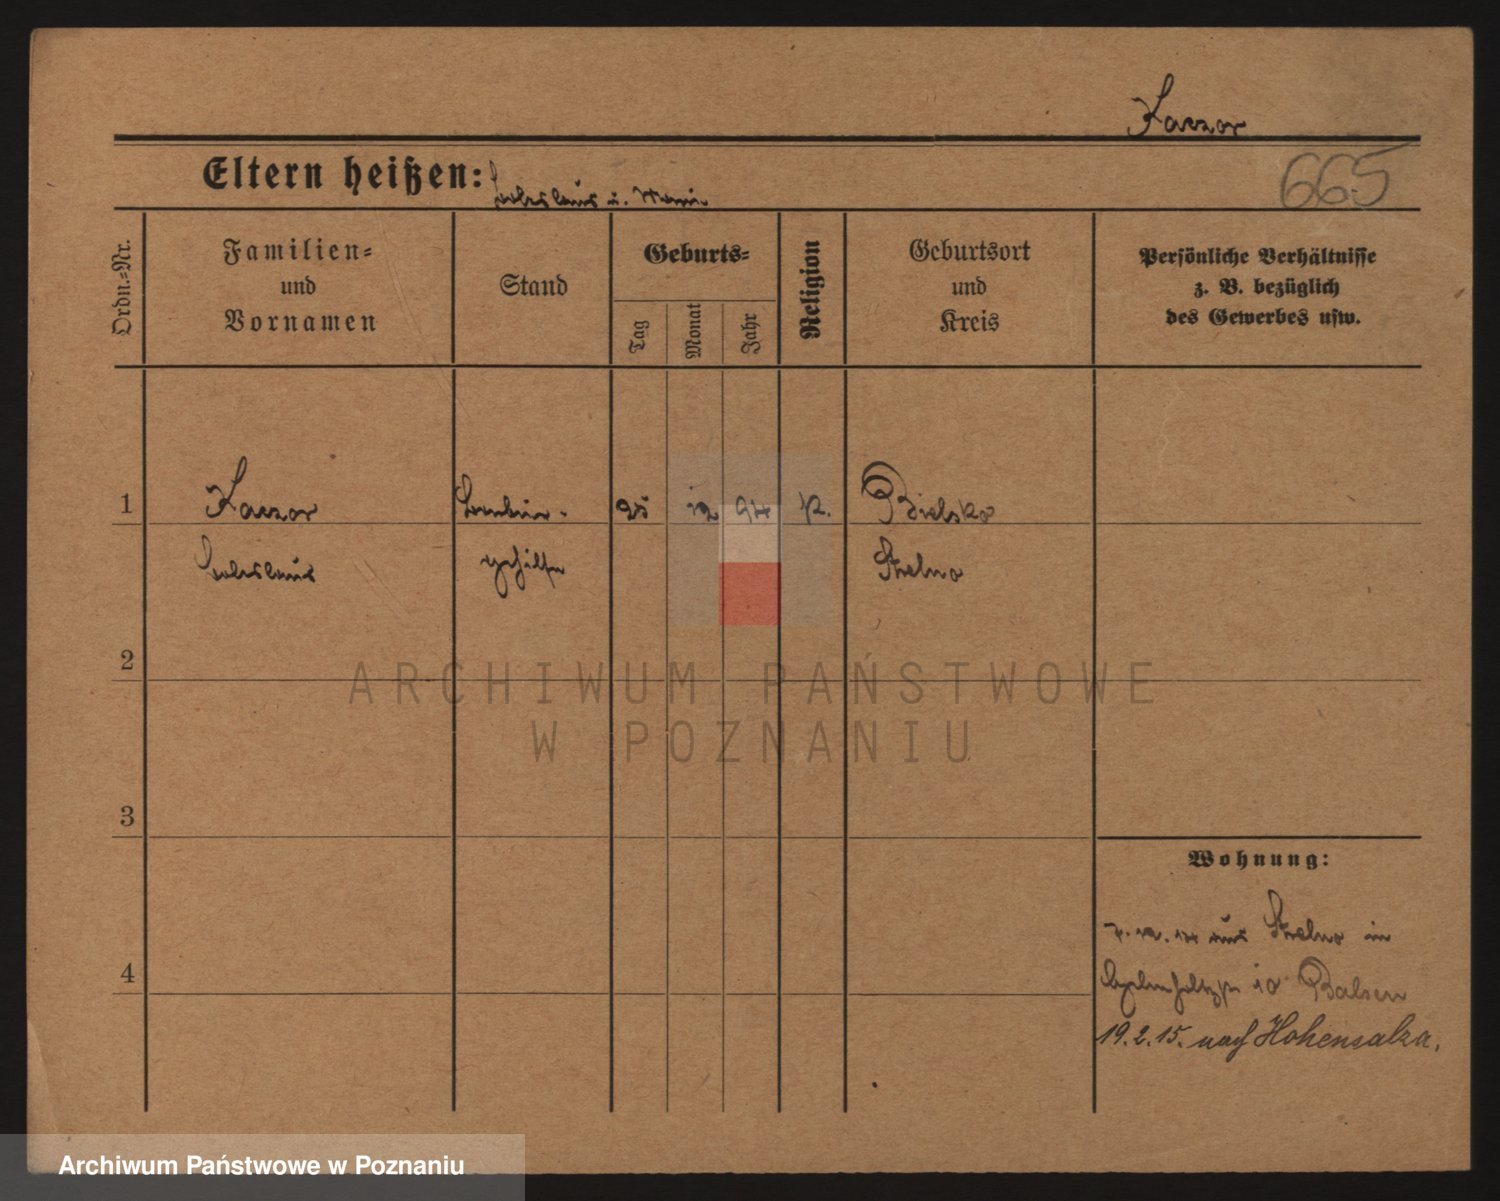 Kaczor
665
Eltern heißen: Boleslaus u. Maria
Ordn.=Nr.
Familien=
und
Vornamen
Stand
Geburts=
Tag
Monat
Jahr
Religion
Geburtsort
und
Kreis
Persönliche Verhältnisse
z. B. bezüglich
des Gewerbes usw.
1
Kaczor
25
12
94
k.
Bielsko
Boleslaus
gehilfe
Strelno
2
3
4
Wohnung:
7.12.14 aus Strelno in
10 Balsen
19.2.15. nach Hohensalza.
ARCHIWUM PAŃSTWOWE
W POZNANIU
Archiwum Państwowe w Poznaniu